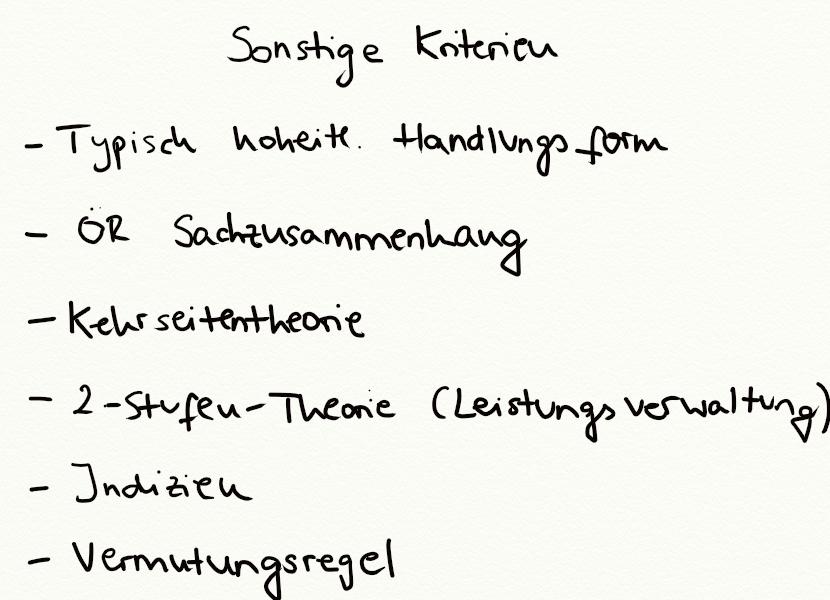 Sonstige Kriterien
- Typisch hoheitl. Handlungsform
- ÖR Sachzusammenhang
- Kehrseitentheorie
- 2-Stufen-Theorie (Leistungsverwaltung)
- Indizien
- Vermutungsregel